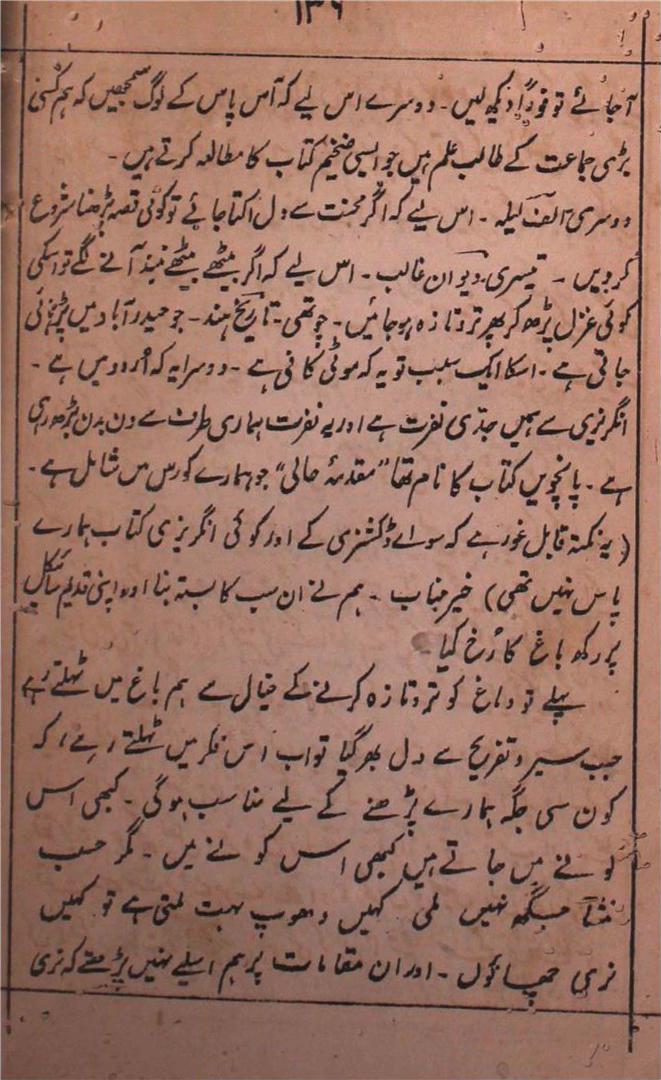 ۱۳۶
آجائے تو فوراً دیکھ لیں۔ دوسرے اس لیے کہ آس پاس کے لوگ سمجھیں کہ ہم کسی
بڑی جماعت کے طالب علم ہیں جو ایسی ضخیم کتاب کا مطالعہ کرتے ہیں۔
دوسری الف لیلہ۔ اس لیے کہ اگر محنت سے دل اکتا جائے تو کوئی قصہ پڑھنا شروع
کردیں۔ تیسری دیوان غالب۔ اس لیے کہ اگر بیٹھے بیٹھے نیند آنے لگے تو اسکی
کوئی غزل پڑھ کر پھر تروتازہ ہو جائیں۔ چوتھی۔ تاریخ ہند۔ جو حیدرآباد میں پڑہائی
جاتی ہے۔ اسکا ایک سبب تو یہ کہ موٹی کافی ہے۔ دوسرا یہ کہ اُردو میں ہے۔
انگریزی سے ہمیں جدّی نفرت ہے اور یہ نفرت ہماری طرف سے دن بدن بڑھ رہی
ہے۔ پانچویں کتاب کا نام تھا "مقدمۂ حالی" جو ہمارے کورس میں شامل ہے۔
(یہ نکتہ قابل غور ہے کہ سوائے ڈکشنری کے اور کوئی انگریزی کتاب ہمارے
پاس نہیں تھی) خیر جناب۔ ہم نے ان سب کا بستہ بنا اور اپنی قدیم سائیکل
پر رکھ باغ کا رُخ کیا۔
پہلے تو دماغ کو تروتازہ کرنے کے خیال سے ہم باغ میں ٹہلتے رہے
جب سیر و تفریح سے دل بھر گیا تو اب اس فکر میں ٹہلتے رہے کہ
کون سی جگہ ہمارے پڑھنے کے لیے مناسب ہوگی۔ کبھی اس
کونے میں جاتے ہیں کبھی اس کونے میں۔ مگر حسب
منشا جگہ نہیں ملی کہیں دھوپ بہت ملتی ہے تو کہیں
نری چھاؤں۔ اور ان مقامات پر ہم اسلیے نہیں پڑھتے کہ نری